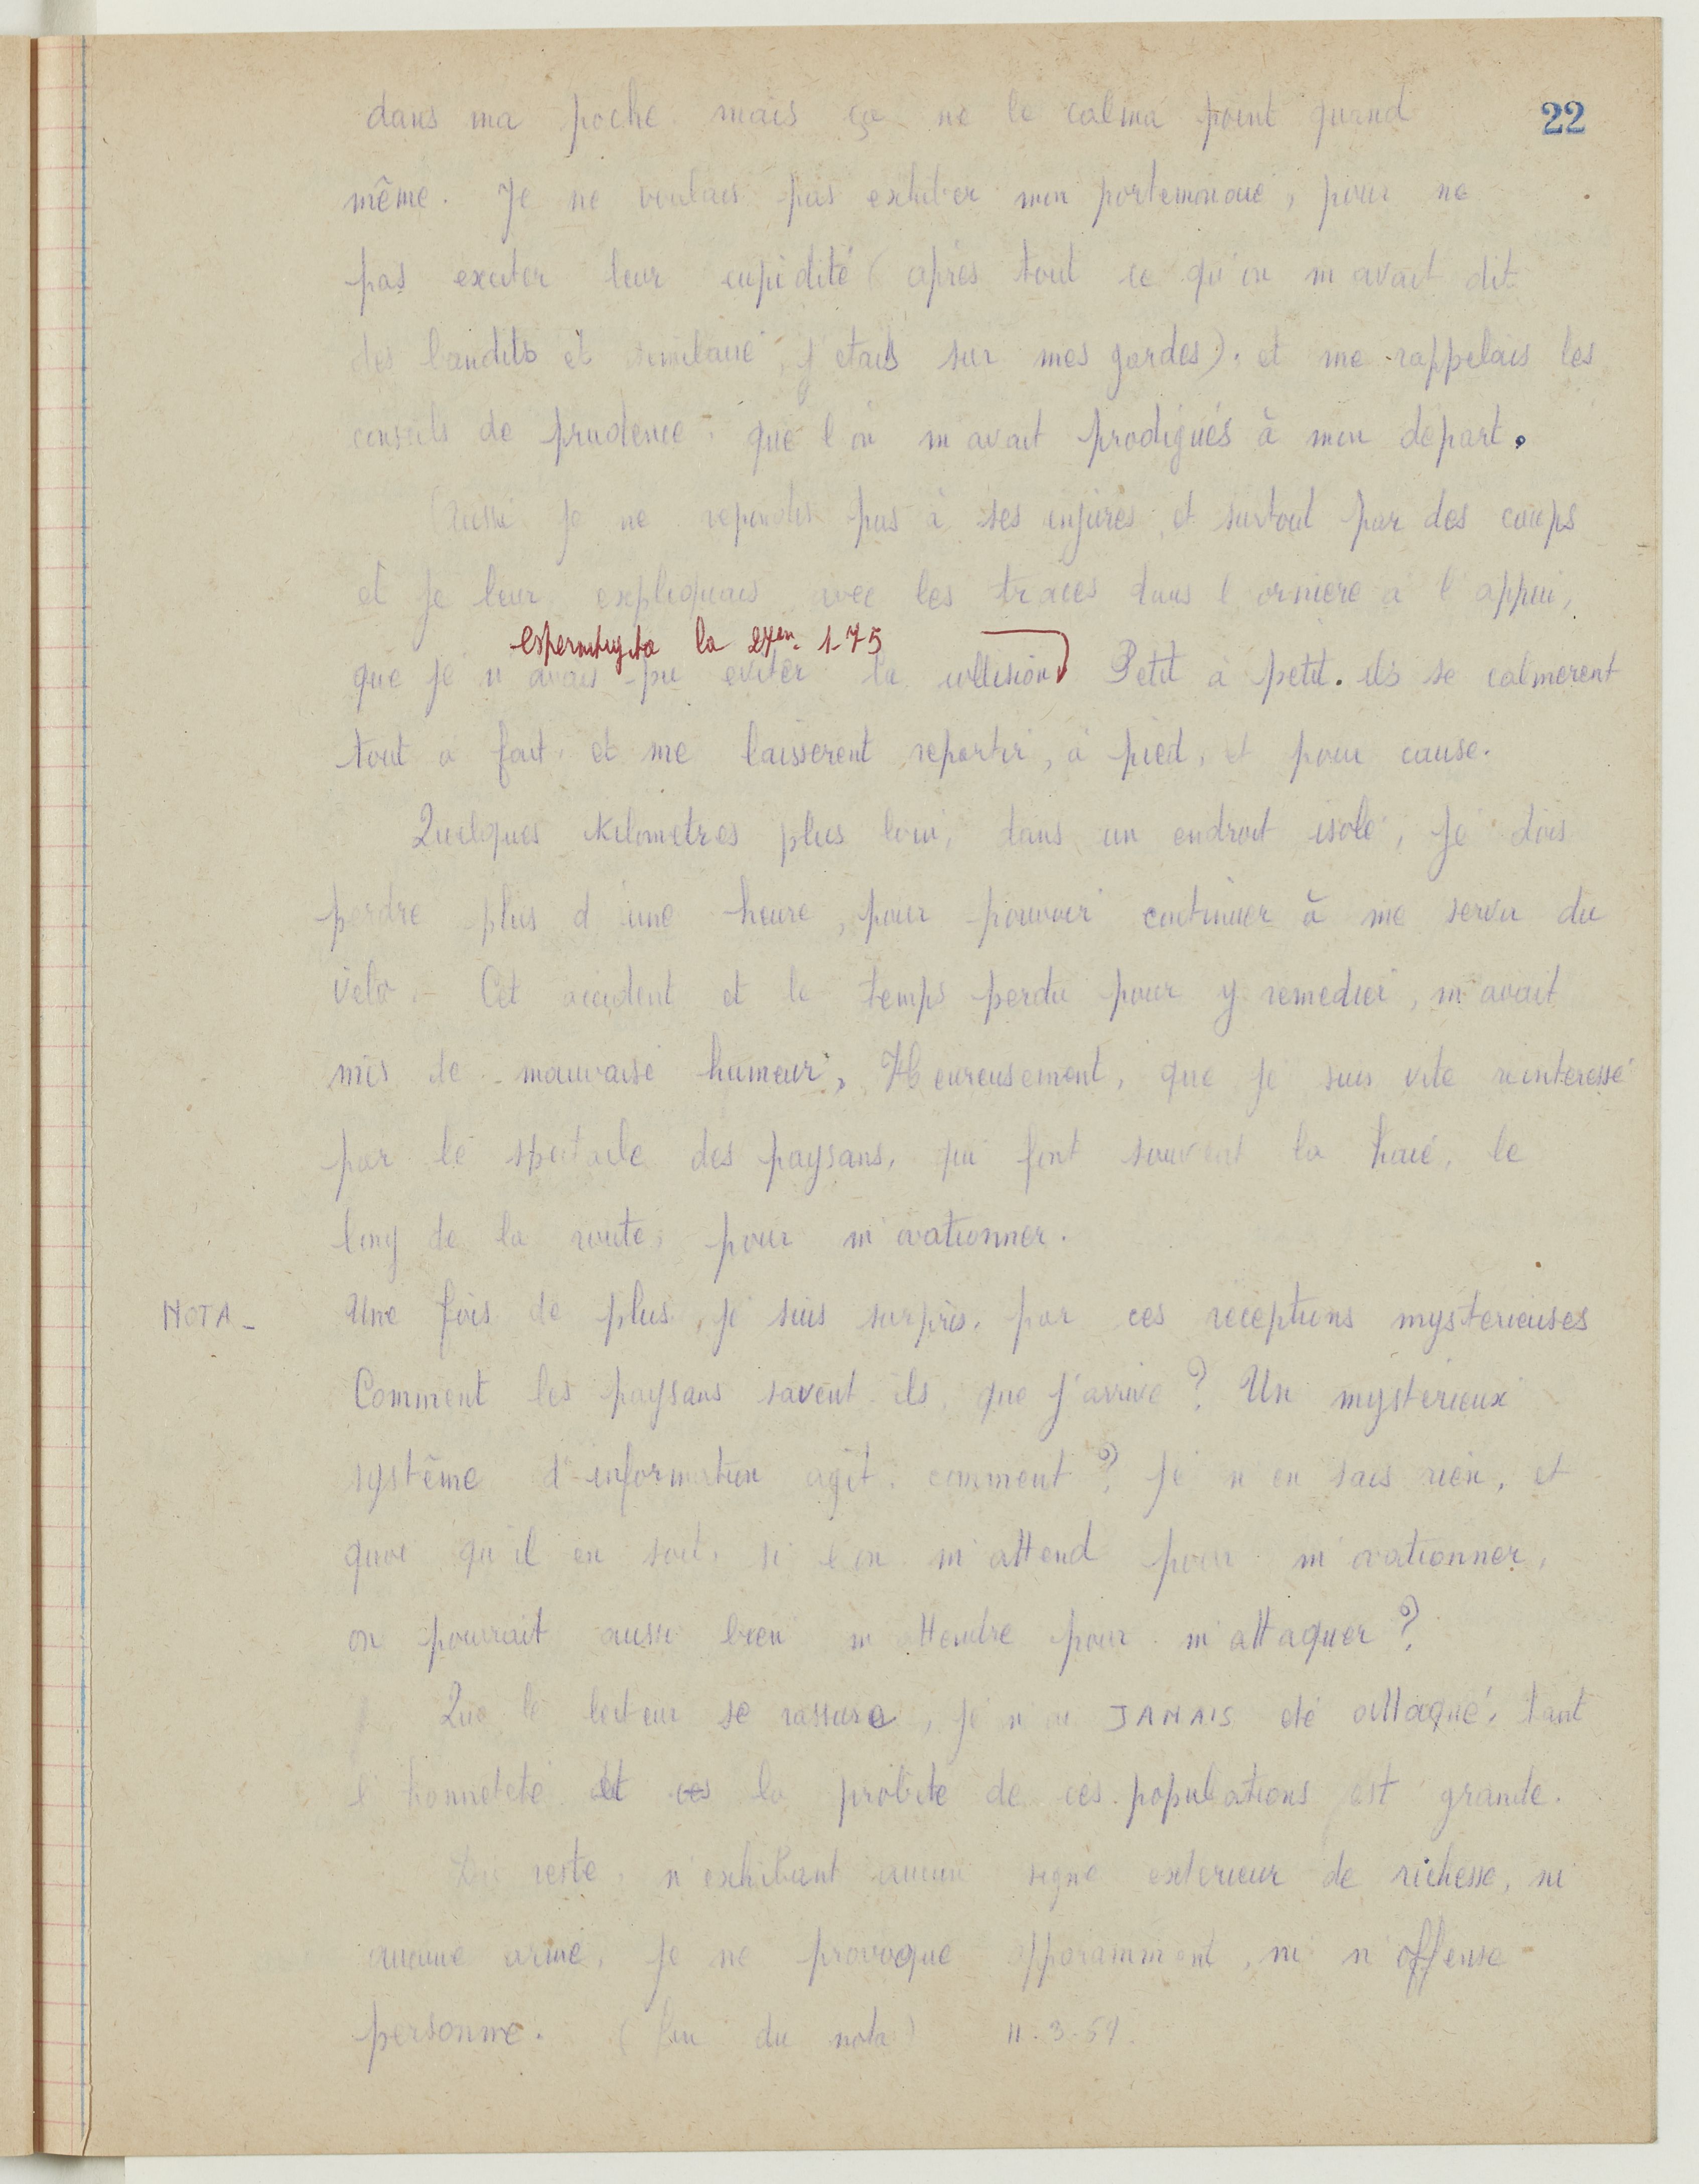 22
dans ma poche mais ça ne le calma point quand
même. Je ne voulais pas exhiber mon portemonaie, pour ne
pas exciter leur cupidité (aprés tout ce qu'on m'avait dit
des bandits et similaire j'etais sur mes gardes). et me rappelais les
conseils de prudence, que l'on m'avait prodigués à mon départ.
Aussi je ne repondis pas à ses injures et surtout par des coups
et je leur expliquais avec les traces dans l'orniere a l'appui,
esperantigita la 27en. 1-75
que je n'avais pu eviter la collision) Petit a petit. ils se calmerent
tout a fait, et me laisserent repartir, à pied, et pour cause.
Quelques Kilometres plus loin, dans un endroit isolé, je dois
perdre plus d'une heure, pour pouvoir continuer à me servir du
velo. - Cet accident et le temps perdu pour y remedier, m'avait
mis de mauvaise humeur, Heureusement, que je suis vite reinteressé
par le spectacle des paysans, qui font souvent la haie, le
long de la route, pour m'ovationner.
NOTA - Une fois de plus, je suis surpris, par ces receptions mysterieuses
Comment les paysans savent ils, que j'arrive ? Un mysterieux
systême d'information agit. comment ? Je n'en sais rien, et
quoi qu'il en soit, si l'on m'attend pour m'ovationner,
on pourrait aussi bien m'attendre pour m'attaquer ?
Que le lecteur se rassure, je n'ai JAMAIS été attaqué, tant
l'honneteté et ces la probité de ces populations est grande.
Du reste, n'exhibant aucun signe exterieur de richesse, ni
aucune arme, je ne provoque apparamment, ni n'offense
personne. (fin du nota) 11-3-59.